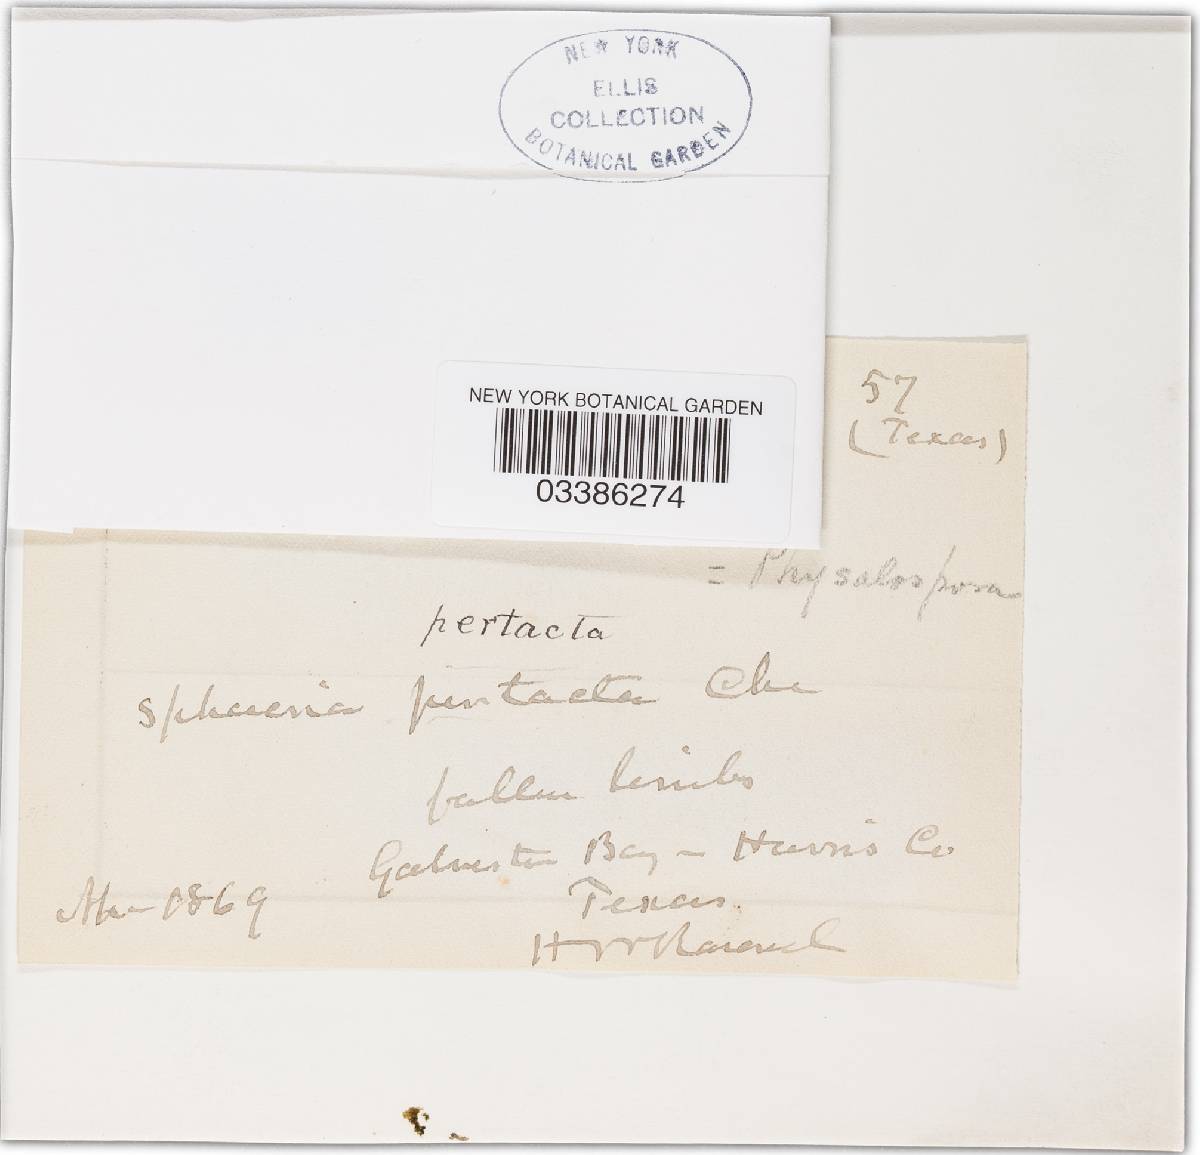 NEW YORK
ELLIS
COLLECTION
BOTANICAL GARDEN
NEW YORK BOTANICAL GARDEN
03386274
57
(Texas)
= Physalospora
pertacta
Sphaeria pertacta Cke
fallen limbs
Galveston Bay - Harris Co
Texas
1869
H W Ravenel